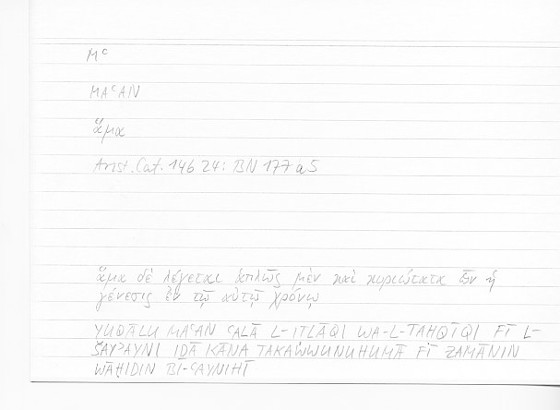 Mᶜ
MAᶜAN
ἅμα
Arist. Cat. 14b 24: BN 177 a 5
ἅμα δὲ λέγεται ἁπλῶς μὲν καὶ κυριώτατα ὧν ἡ
γένεσις ἐν τῷ αὐτῷ χρόνῳ
YUQĀLU MAᶜAN ᶜALĀ L-ITLĀQI WA-L-TAHQĪQI FĪ L-
ŠAYʾAYNI IDĀ KĀNA TAKAWWUNUHUMĀ FĪ ZAMĀNIN
WĀḤIDIN BI-ᶜAYNIHĪ